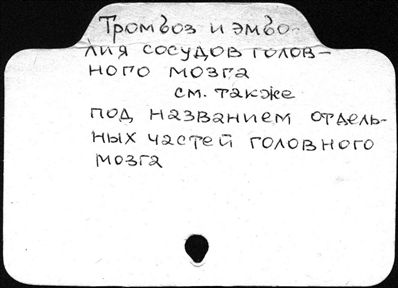 Тромбоз и эмбо-
лия сосудов голов-
ного мозга
см. также
под названием отдель-
ных частей головного
мозга